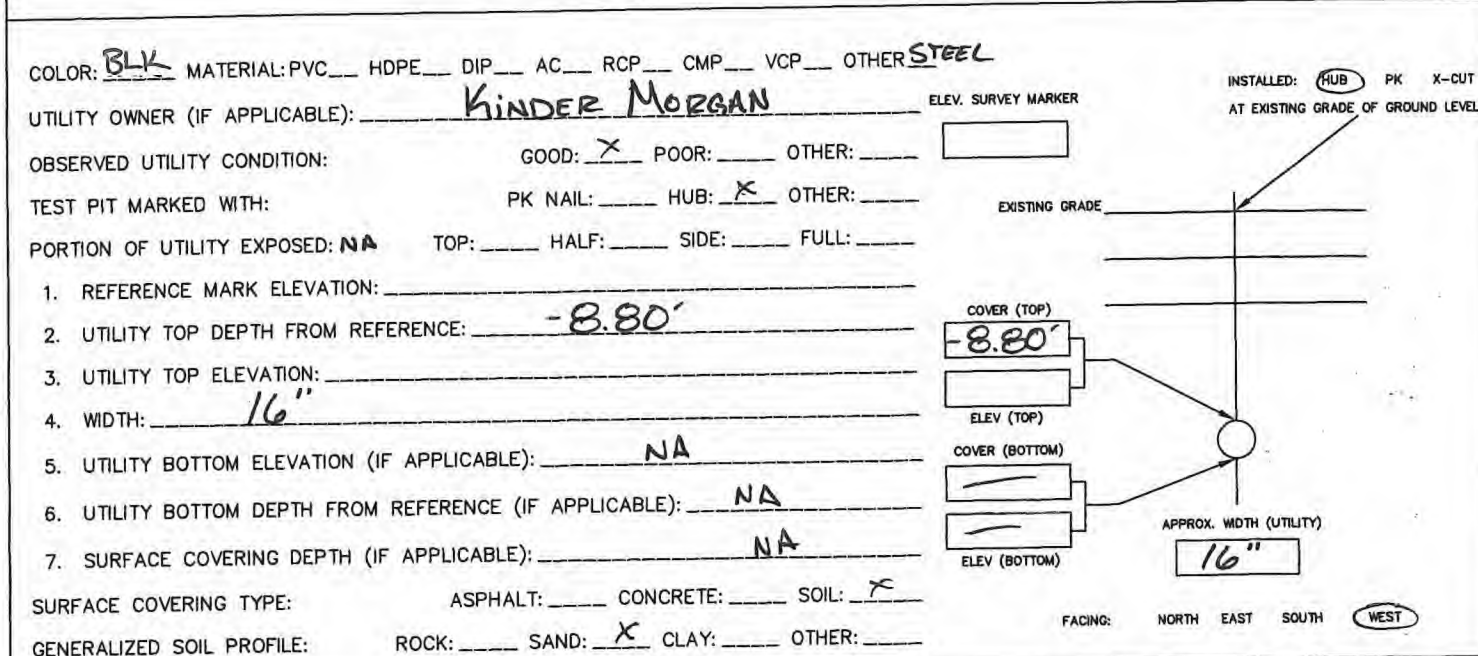 COLOR: BLK MATERIAL: PVC__ HDPE__ DIP__ AC__ RCP__ CMP__ VCP__ OTHER STEEL
UTILITY OWNER (IF APPLICABLE): KINDER MORGAN
OBSERVED UTILITY CONDITION: GOOD: X POOR: ____ OTHER: ____
TEST PIT MARKED WITH: PK NAIL: ____ HUB: X OTHER: ____
PORTION OF UTILITY EXPOSED: NA TOP: ____ HALF: ____ SIDE: ____ FULL: ____
1. REFERENCE MARK ELEVATION:
2. UTILITY TOP DEPTH FROM REFERENCE: -8.80'
3. UTILITY TOP ELEVATION:
4. WIDTH: 16"
5. UTILITY BOTTOM ELEVATION (IF APPLICABLE): NA
6. UTILITY BOTTOM DEPTH FROM REFERENCE (IF APPLICABLE): NA
7. SURFACE COVERING DEPTH (IF APPLICABLE): NA
SURFACE COVERING TYPE: ASPHALT: ____ CONCRETE: ____ SOIL: X
GENERALIZED SOIL PROFILE: ROCK: ____ SAND: X CLAY: ____ OTHER: ____
ELEV. SURVEY MARKER
INSTALLED: HUB PK X-CUT
AT EXISTING GRADE OF GROUND LEVEL
EXISTING GRADE
COVER (TOP)
-8.80'
ELEV (TOP)
COVER (BOTTOM)
—
—
ELEV (BOTTOM)
APPROX. WIDTH (UTILITY)
16"
FACING: NORTH EAST SOUTH WEST